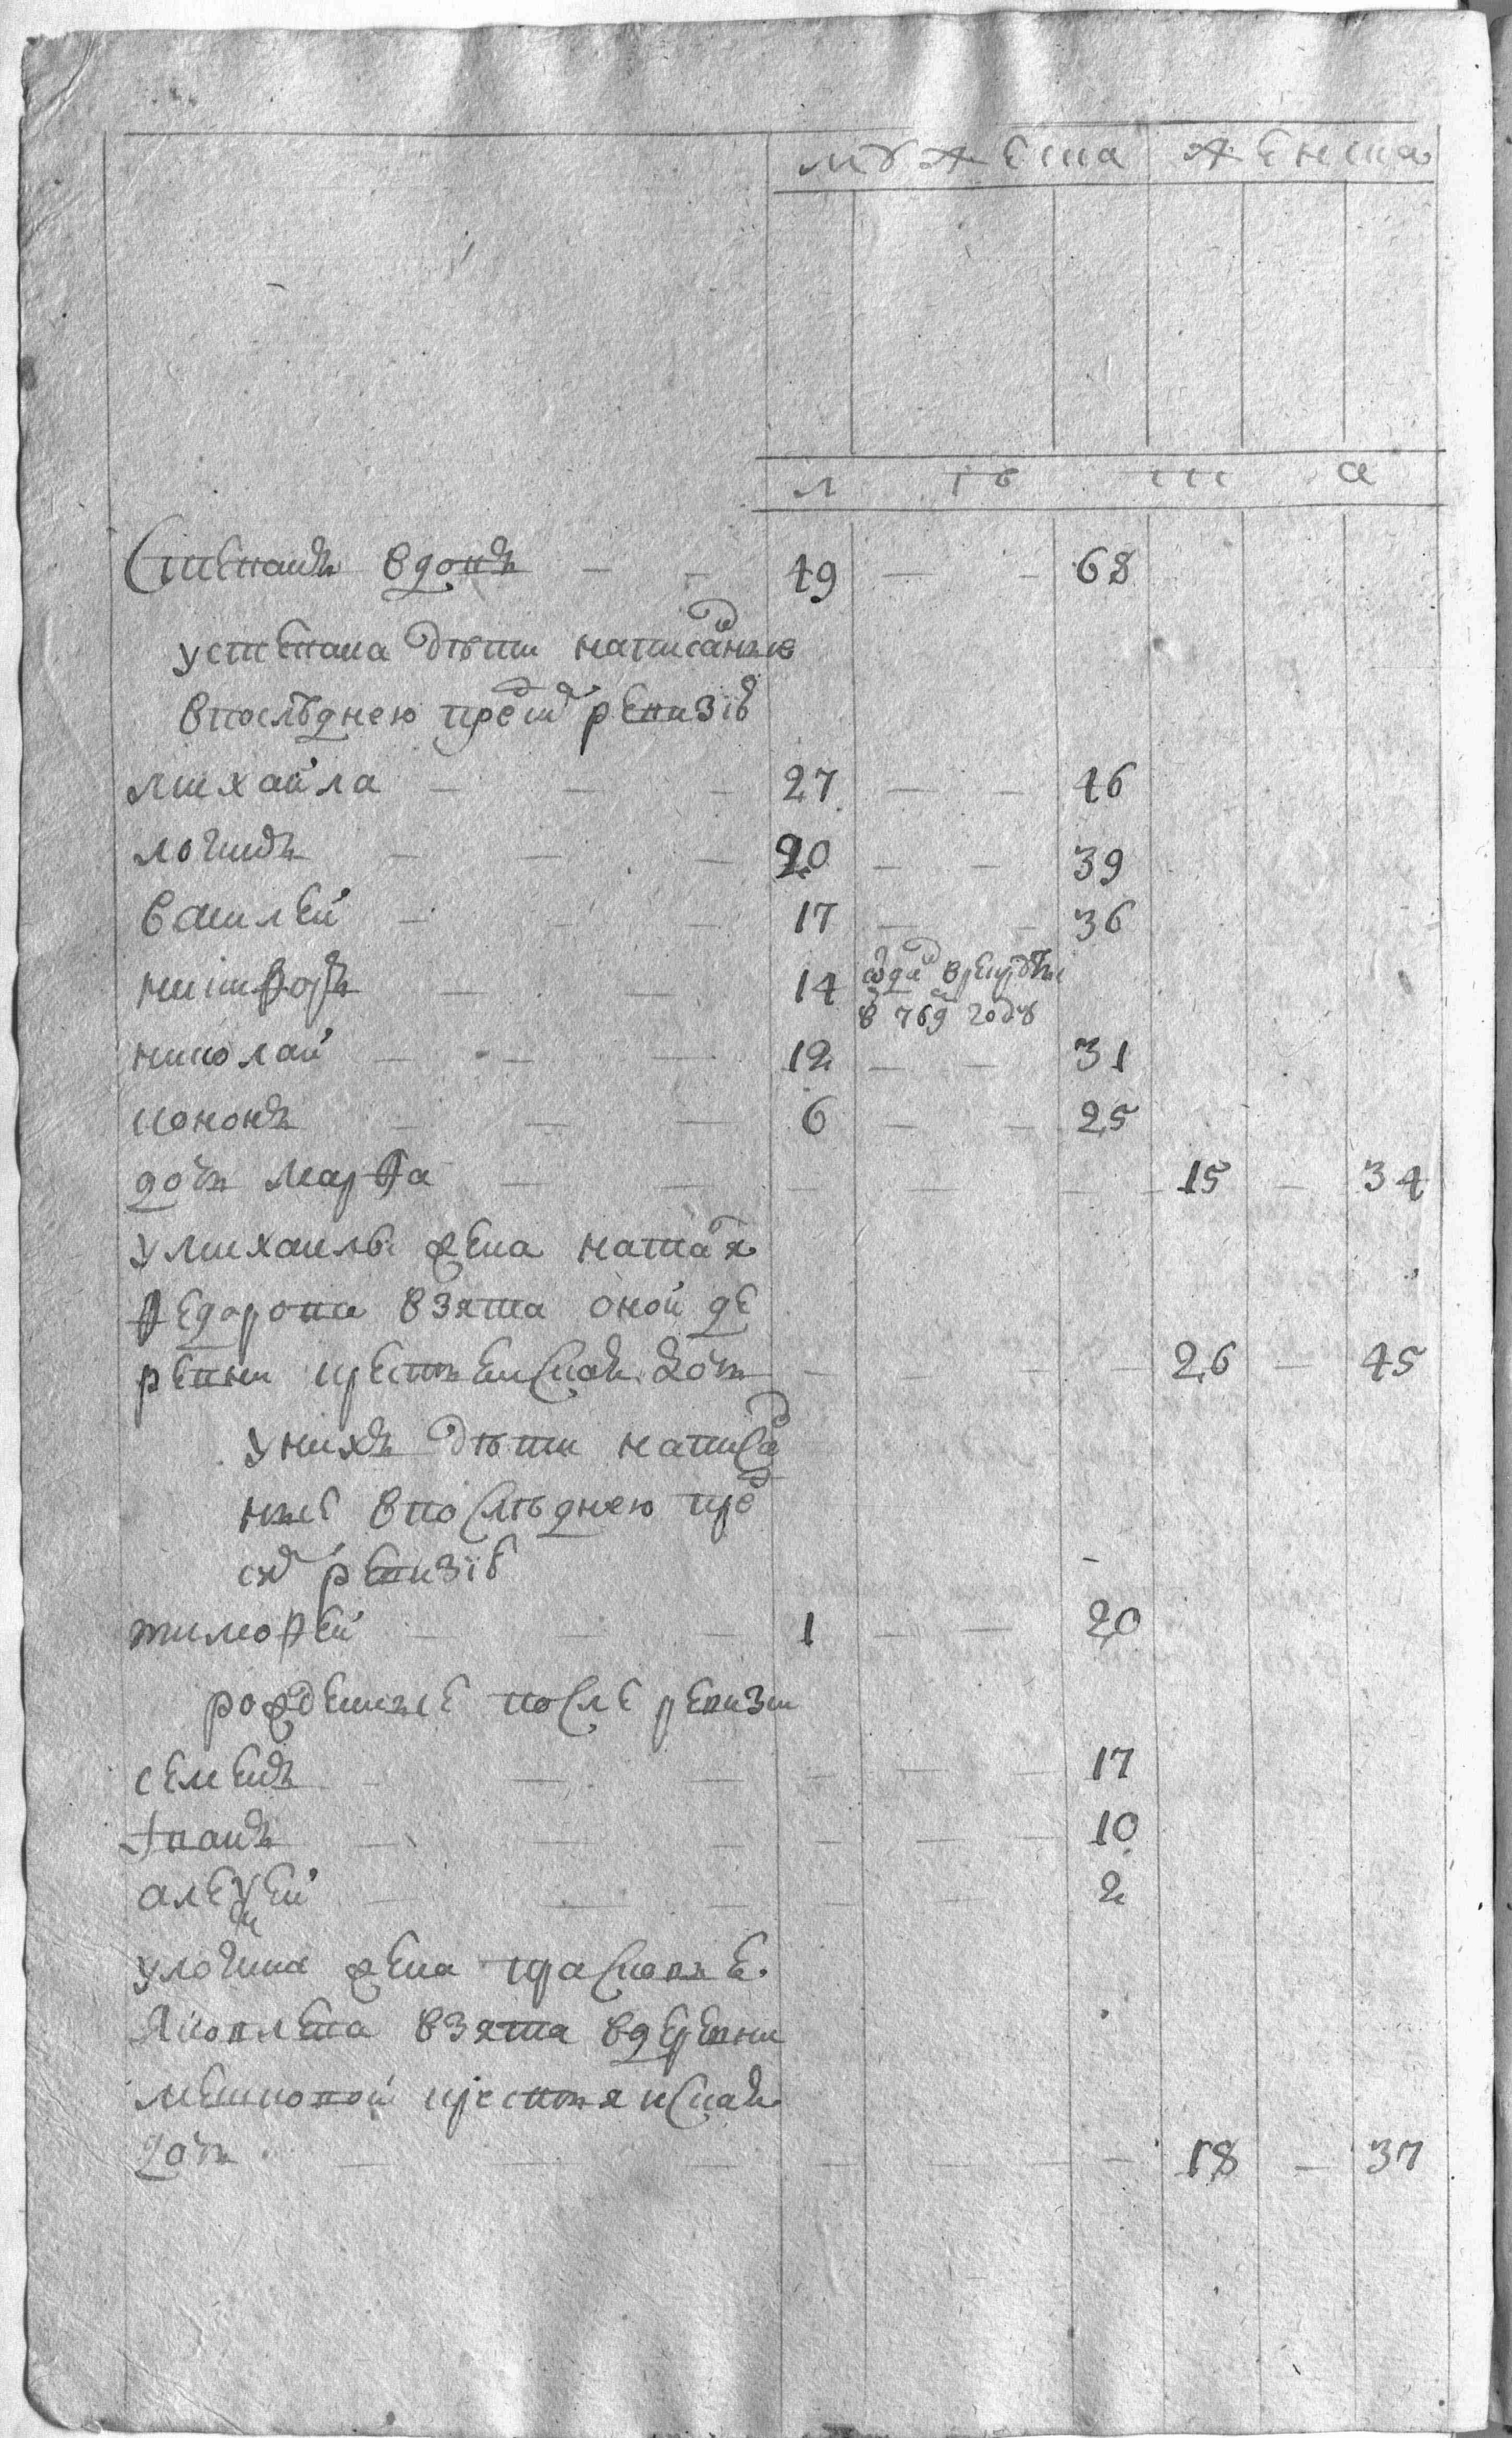 мꙋжеска женска
л ѣ т а
Степанъ вдовъ — — 49 — — 68
у степана дѣти написаныѣ
в послѣднею пред сею ревизіѣ
михайла — — — 27 — — 46
логинъ — — — 20 — — 39
василей — — — 17 — — 36
никифоръ — — 14 ѿдан в рекруты
в 769 годꙋ
николай — — — 12 — — 31
кононъ — — 6 — — 25
дочь марфа — — — — — — 15 — 34
у михаилы жена наталья
федорова взята оной де
ревни крестьянская дочь — — — — 26 — 45
у нихъ дѣти написа
ные в послѣднею пред
сею ревизіѣ
тимофей — — — 1 — — 20
рожденные после ревизи
семенъ — — — — — — 17
иванъ — — — — — — 10
алексей — — — — — 2
у логина жена прасковья
Яковлева взята в деревни
мешковой крестьянская
дочь — — — — — — 18 — 37